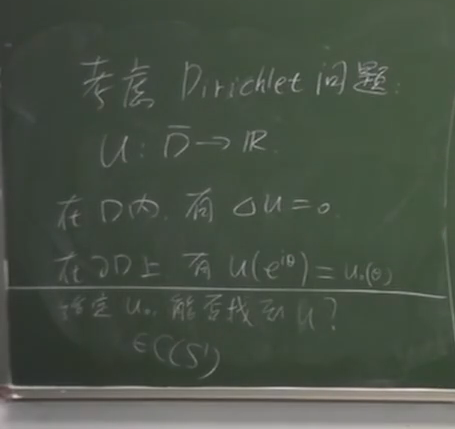 考虑 Dirichlet 问题:
U: D̄→ℝ.
在 D内, 有 △U=0.
在 ∂D上 有 U(e^{iθ})=u₀(θ)
给定 u₀, 能否找到 U?
∈C(S¹)